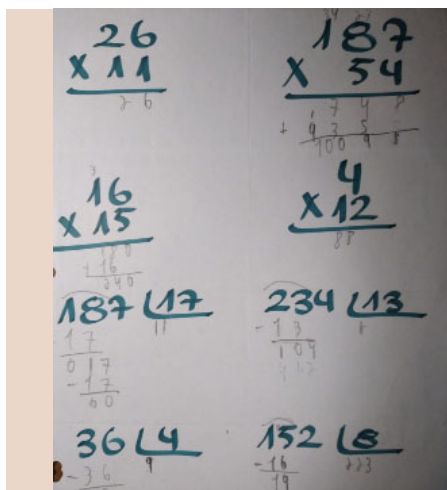 26
x 11
26
187
x 54
748
+ 935
10098
16
x 15
180
+ 16
240
4
x 12
88
187 17
- 17 11
017
- 17
00
234 13
- 13 1
104
36 4
- 36 9
152 8
- 16 223
19